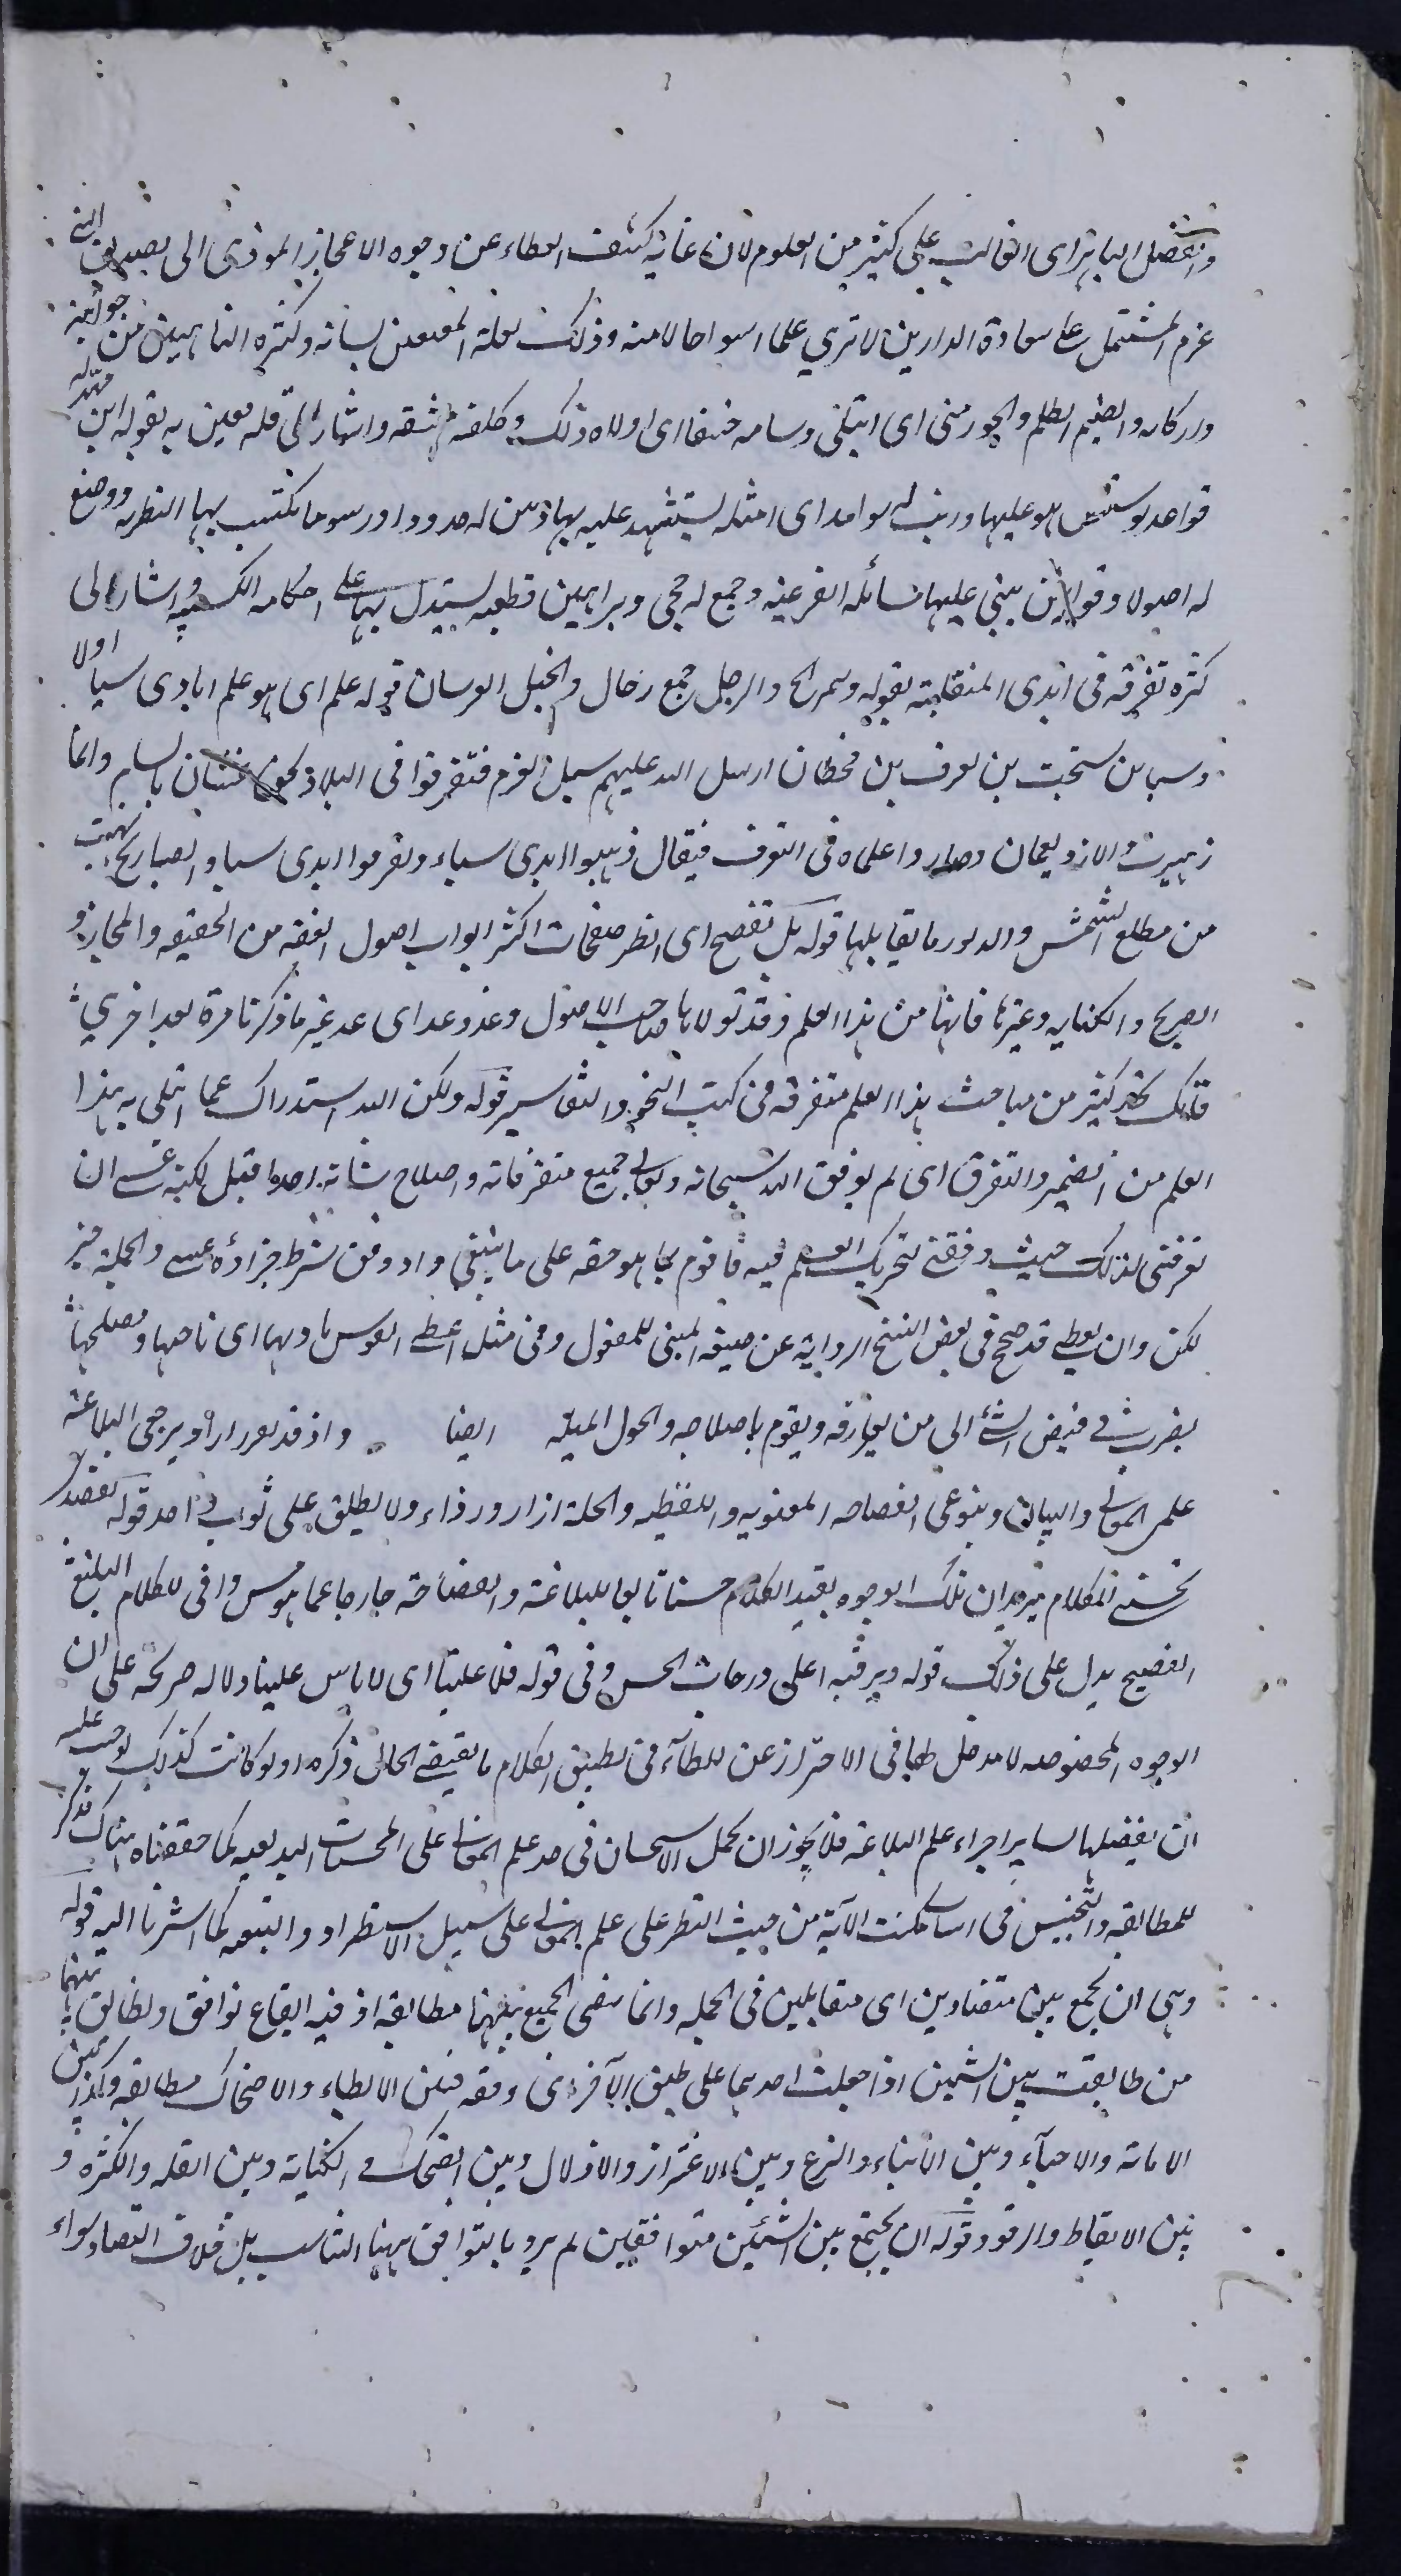 والفضل الباهر اى الغالب على كثير من العلوم لان غايه كشف الغطاء عن وجوه الاعجاز المودى الى تصديق النبى
عزم المشتمل على سعادة الدارين لا ترى علما اسوا حالا منه وذلك لقلة المفتعين لسانه وكثره الناهبين من جوانبه
واركانه والضيم الظلم والجور منى اى ابتلى وسامه خسفا اى اولاه ذلك وكلفه مشقه واشار الى قله معين به بقوله اين مهد له
قواعد وسس هو عليها ورتب له شواهد اى امثله يستشهد عليه بها وبين له حدودا ورسوما تكتسب بها النظريه ووضع
له اصولا وقوانين يبنى عليها مسائله الفرعيه وجمع له حجج وبراهين قطعيه يستدل بها على احكامه الكسبيه واشار الى
كثره تفرقه فى ايدى المتغلبة بقوله وتمزق والرجل جمع رجال والخيل الفرسان قوله علم اى هو علم ايادى سبا اولا
وسبا بن يشجب بن يعرب بن قحطان ارسل الله عليهم سيل العرم فتفرقوا فى البلاد غسان بالشام وانما
يثرب والازد بعمان وصاروا اعلاه فى التفرق فيقال ذهبوا ايدى سباء وتفرقوا ايدى سبا والصبا ريح تهب
من مطلع الشمس والدبور ما يقابلها قوله بل تصفح اى انظر صفحات اكثر ابواب اصول الفقه من الحقيقه والمجاز و
الصريح والكنايه وغيرها فانها من هذا العلم وقد تولاها صاحب الاصول وعد وعد اى عد غير ما ذكرنا مرة بعد اخرى
فانك تجد كثير من مباحث هذا العلم متفرقه فى كتب النحو والتفاسير قوله ولكن الله استدراك عما ابتلى به هذا
العلم من الضيم والتفرق اى لم يوفق الله سبحانه وتعالى جميع متفرقاته واصلاح شانه احدا قبل لكنه عسى ان
يوفقنى لذلك حيث وفقنى لتحريك القلم فيه فاقوم بما هو حقه على ما ينبغى واد وفق شرط جزاؤه عسى والجملة خبر
لكن وان يعطى قد صح فى بعض النسخ الروايه عن صيغه المبنى للمفعول وفى مثل اعطى القوس باريها اى ناحتها ومصلحها
يضرب فى فيض الشئ الى من يعارفه ويقوم باصلاحه والحول الميله ايضا واذ قد تقرر اراد يرجى البلاغه
علمى المعانى والبيان وبنوعى الفصاحه المعنويه واللفظيه والحلة ازار ورداء ولا يطلق على ثوب واحد قوله لقصد
تحسين الكلام يريد ان تلك الوجوه يفيد الكلام حسنا تابعا للبلاغة والفصاحة خارجا عما هو حسن واقى للكلام البليغ
الفصيح يدل على ذلك قوله ويرقيه اعلى درجات الحسن وفى قوله فلا علينا اى لا باس علينا دلاله صريحه على ان
الوجوه المخصوصه لا مدخل لها فى الاحتراز عن الخطاء فى تطبيق الكلام ما يقتضى الحال ذكره او لو كانت كذلك لوجب عليه
ان يفصلها لساير اجزاء علم البلاغه فلا يجوز ان يحمل الاستحسان فى حد علم المعانى على المحسنات البديعيه كما حققناه هناك فذكر
للمطابقه والتجنيس فى اساس نكت الآية من حيث النظر على علم المعانى على سبيل الاستطراد والتبعيه كما اشرنا اليه قوله
وهى ان تجمع بين متضادين اى متقابلين فى الجمله وانما سمى الجمع بينهما مطابقه اذ فيه ايقاع توافق وتطابق بينهما
من طابقت بين الشيئين اذا جعلت احدهما على طبق الآخر اى وفقه فبين الابكاء والاضحاك مطابقه وكذا بين
الاماته والاحياء وبين الايتاء والنزع وبين الاعزاز والاذلال وبين الضحك والبكاية وبين القله والكثره و
بين الايقاظ والرقود وقوله ان يجتمع بين الشيئين متوافقين لم يرد بالتوافق ههنا التناسب بل خلاف التضاد سواء